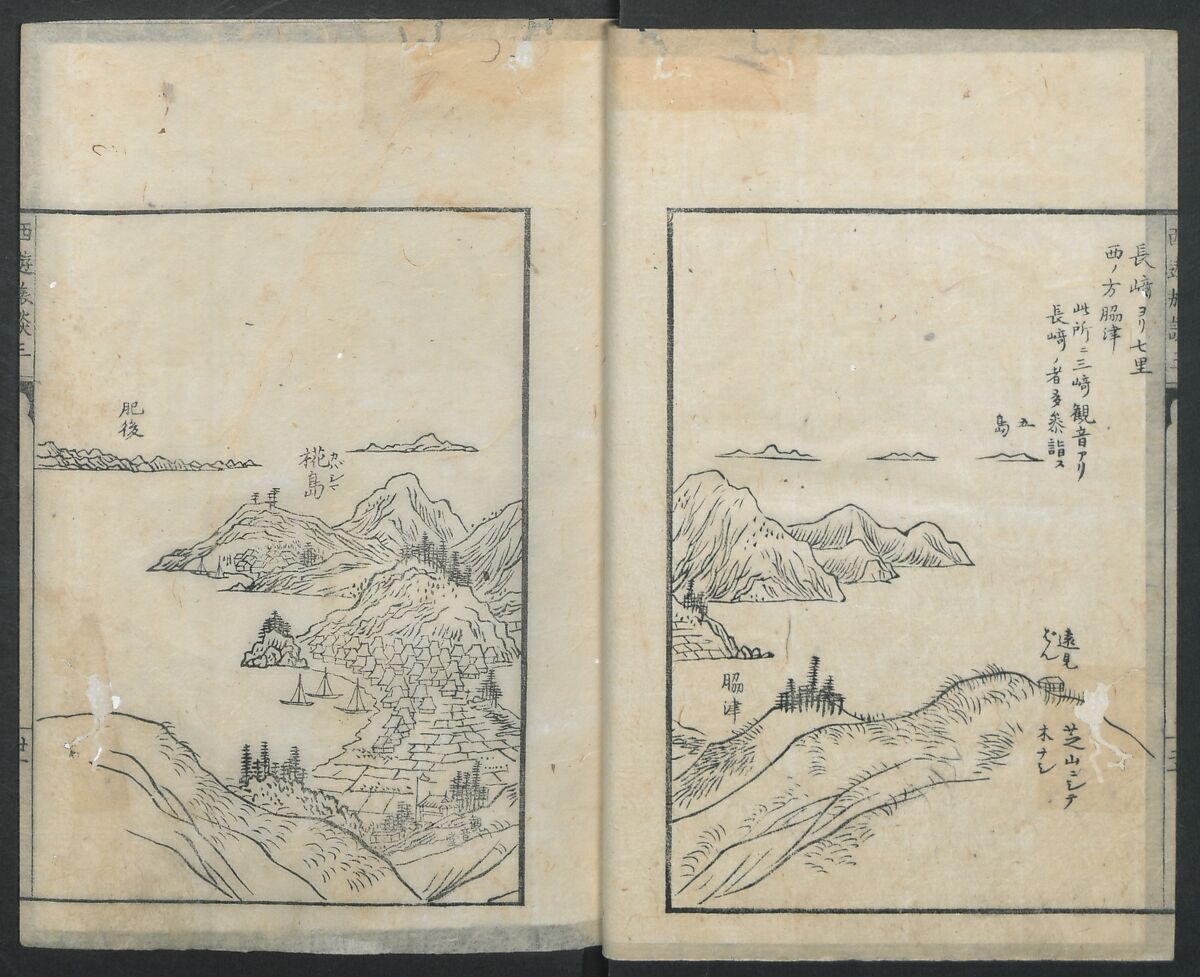 長﨑ヨリ七里
西ノ方脇津
此所ニ三﨑観音アリ
長﨑ノ者多参詣ス
五
島
遠見
ばん
芝山ニシテ
木ナシ
脇津
カバシマ
椛島
肥後
観音堂
西遊旅談三